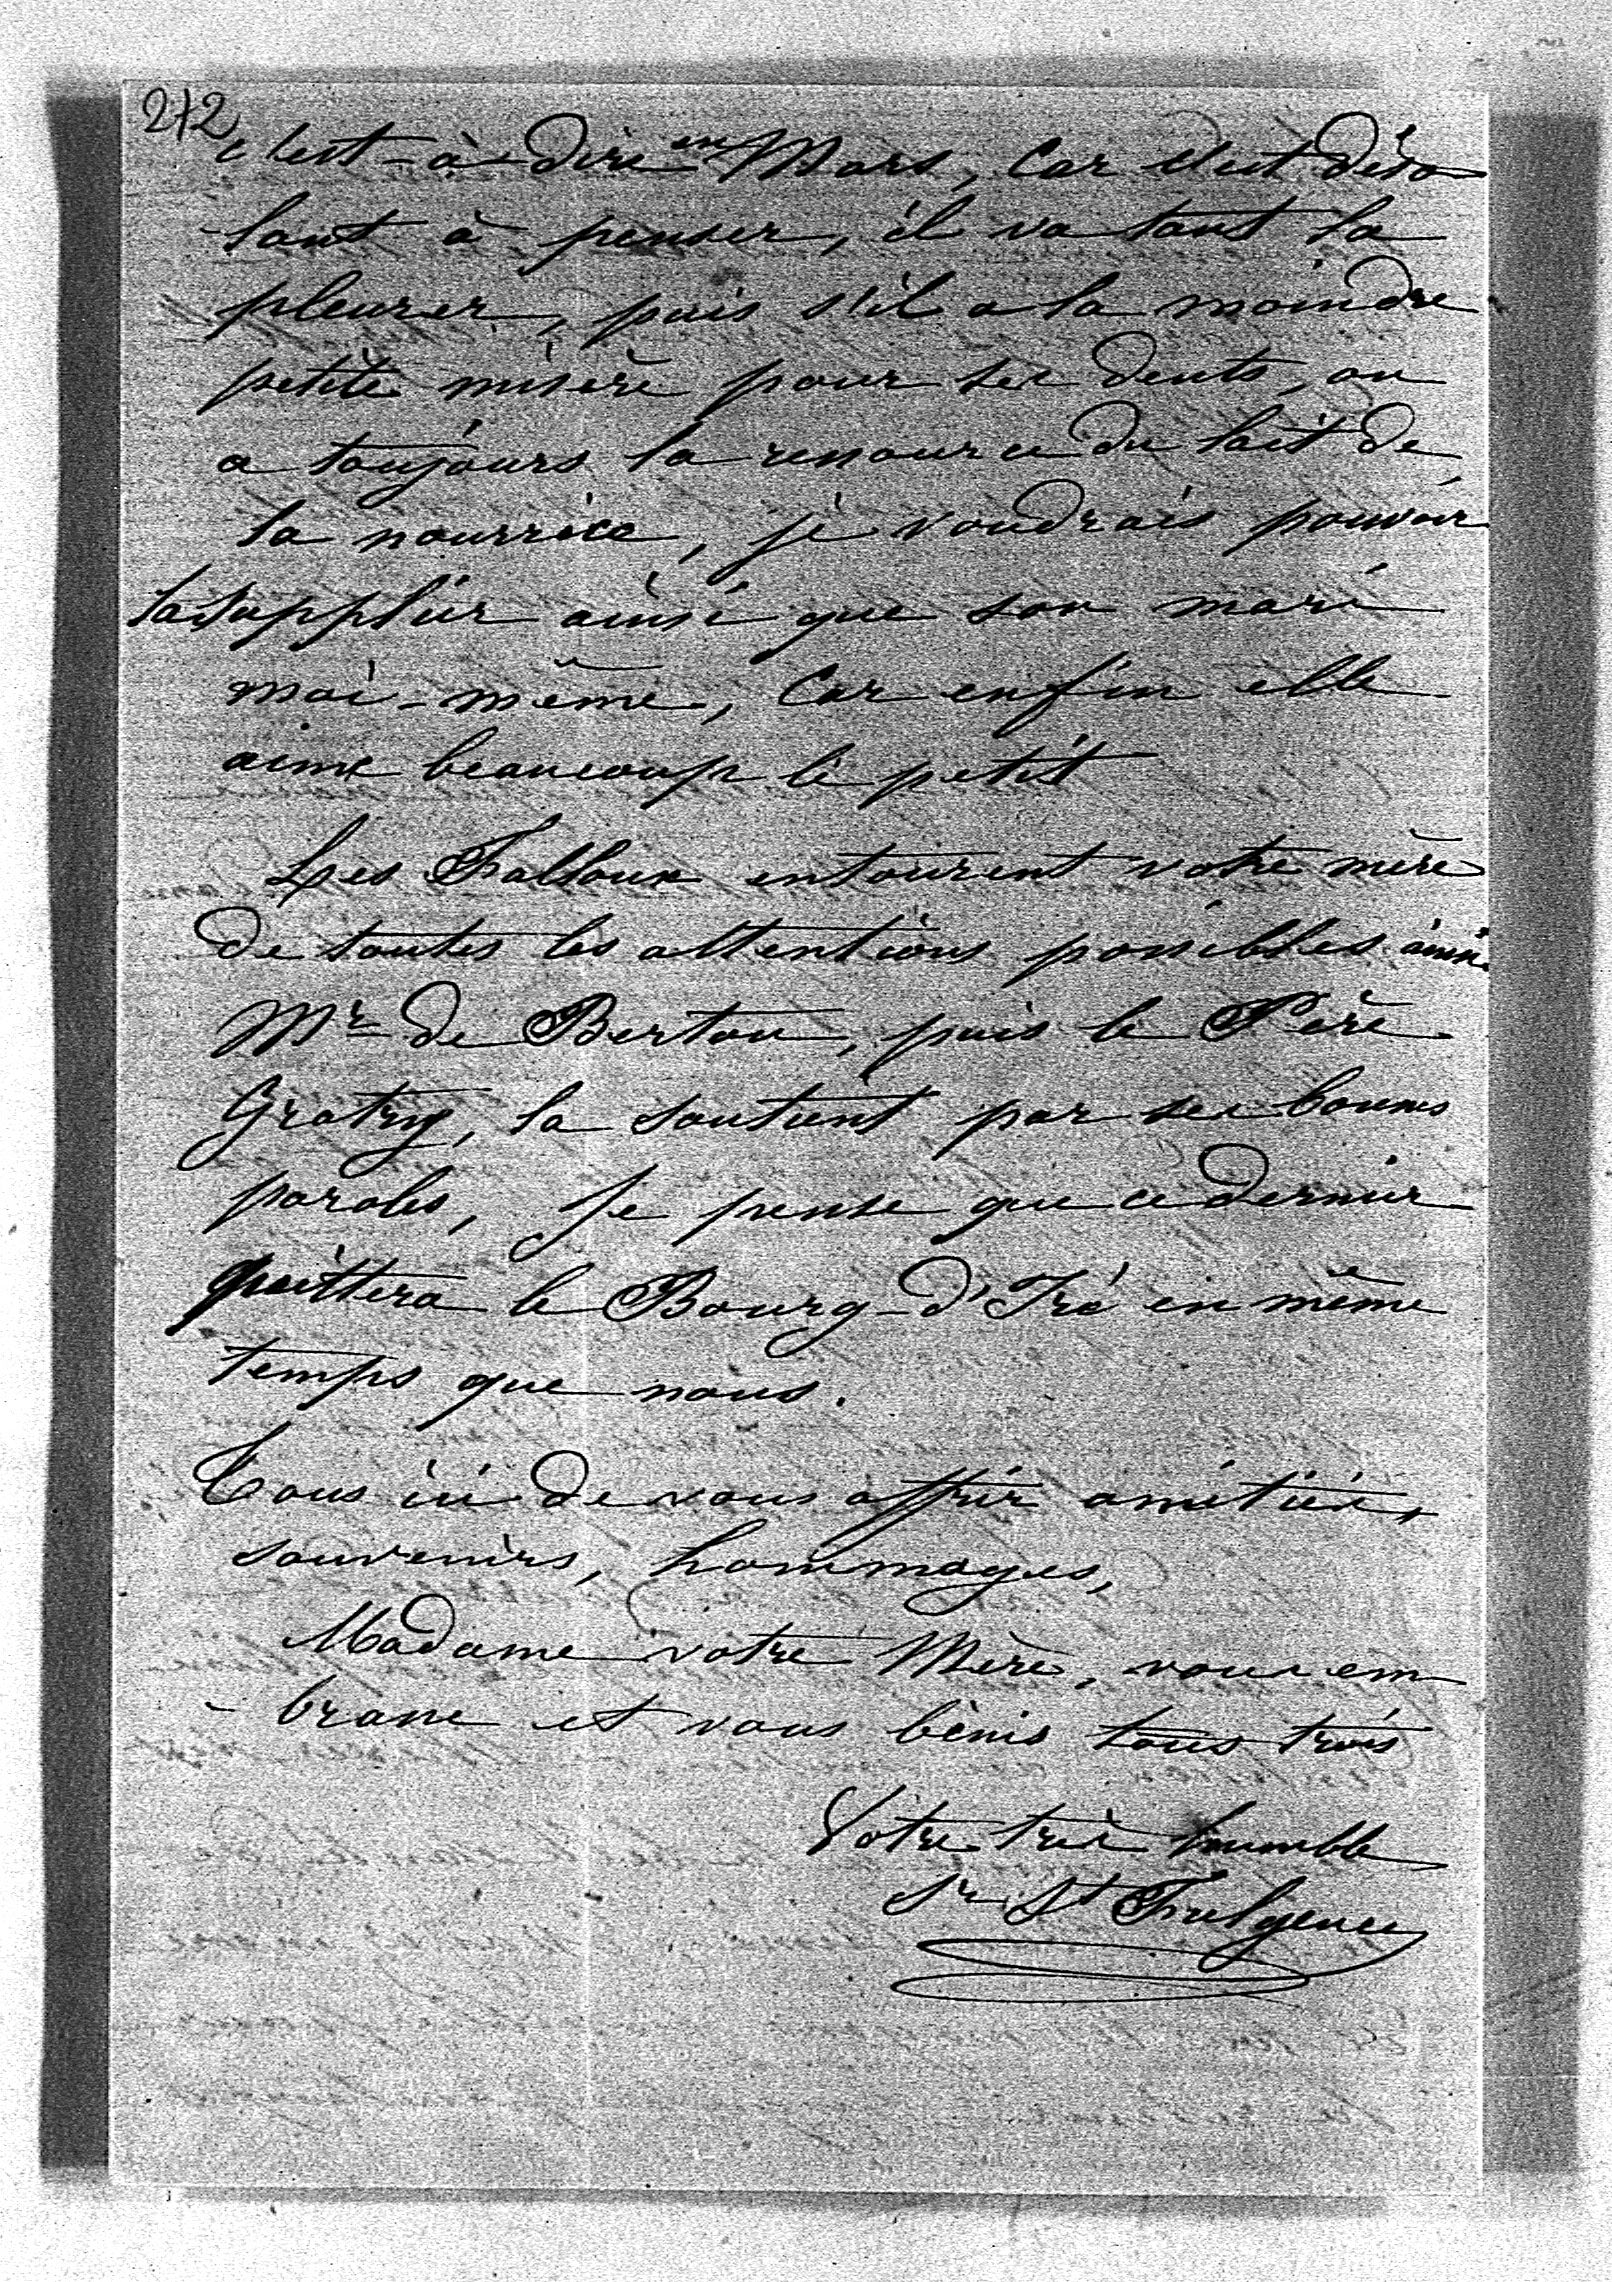 272
c'est-à-dire en Mars, car c'est déso
-lant à penser, il va tant la
pleurer, puis s'il a la moindre
petite misère pour ses dents, on
a toujours la ressource du lait de
la nourrice, je voudrais pouvoir
la supplier ainsi que son mari
moi-même, car enfin elle
aime beaucoup le petit
Les Falloux entourent votre mère
de toutes les attentions possibles ainsi
Mr de Bertou, puis le Père
Gratry, la soutient par ses bonnes
paroles, Je pense que ce dernier
quittera le Bourg-d'Iré en même
temps que nous.
Tous ici de vous offrir amitiés,
souvenirs, hommages,
Madame votre Mère, vous em
-brasse et vous bénis tous trois
Votre très humble
Sr St Fulgence